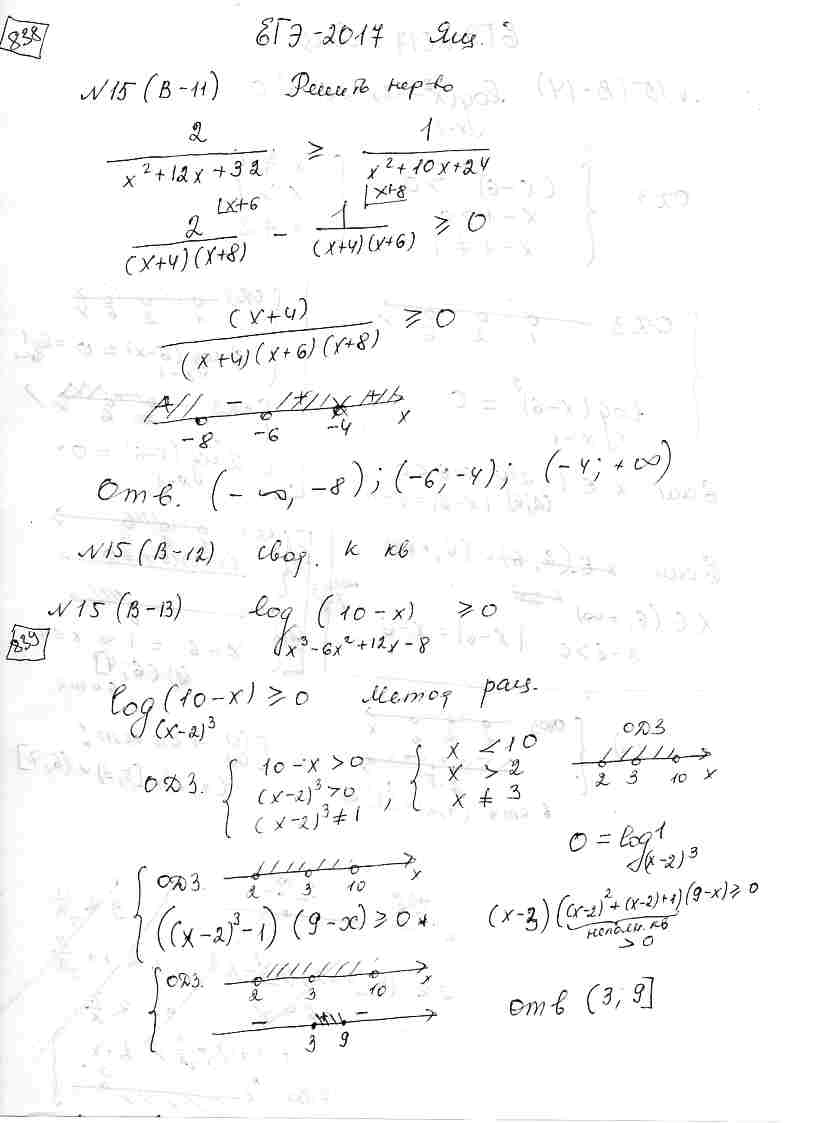 838
ЕГЭ-2017 Ящ.
N15 (В-11) Решить нер-во
2/(x²+12x+32) ≥ 1/(x²+10x+24)
2 |x+6/((x+4)(x+8)) - 1 |x+8/((x+4)(x+6)) ≥ 0
(x+4)/((x+4)(x+6)(x+8)) ≥ 0
+ - + +
-8 -6 -4 x
Отв. (-∞, -8); (-6; -4); (-4; +∞)
N15 (В-12) свод. к кв
N15 (В-13) log_(x³-6x²+12x-8) (10-x) ≥ 0
839
log_(x-2)³ (10-x) ≥ 0 Метод рац.
ОДЗ. { 10-x>0 , { x <10 ОДЗ
(x-2)³>0 x > 2 2 3 10 x
(x-2)³≠1 x ≠ 3
0 = log_(x-2)³ 1
{ ОДЗ. 2 3 10 x
((x-2)³-1)(9-x) ≥ 0 (x-3)((x-2)²+(x-2)+1)(9-x) ≥ 0
неполн. кв
> 0
{ ОДЗ. 2 3 10 x
- + - Отв (3; 9]
3 9